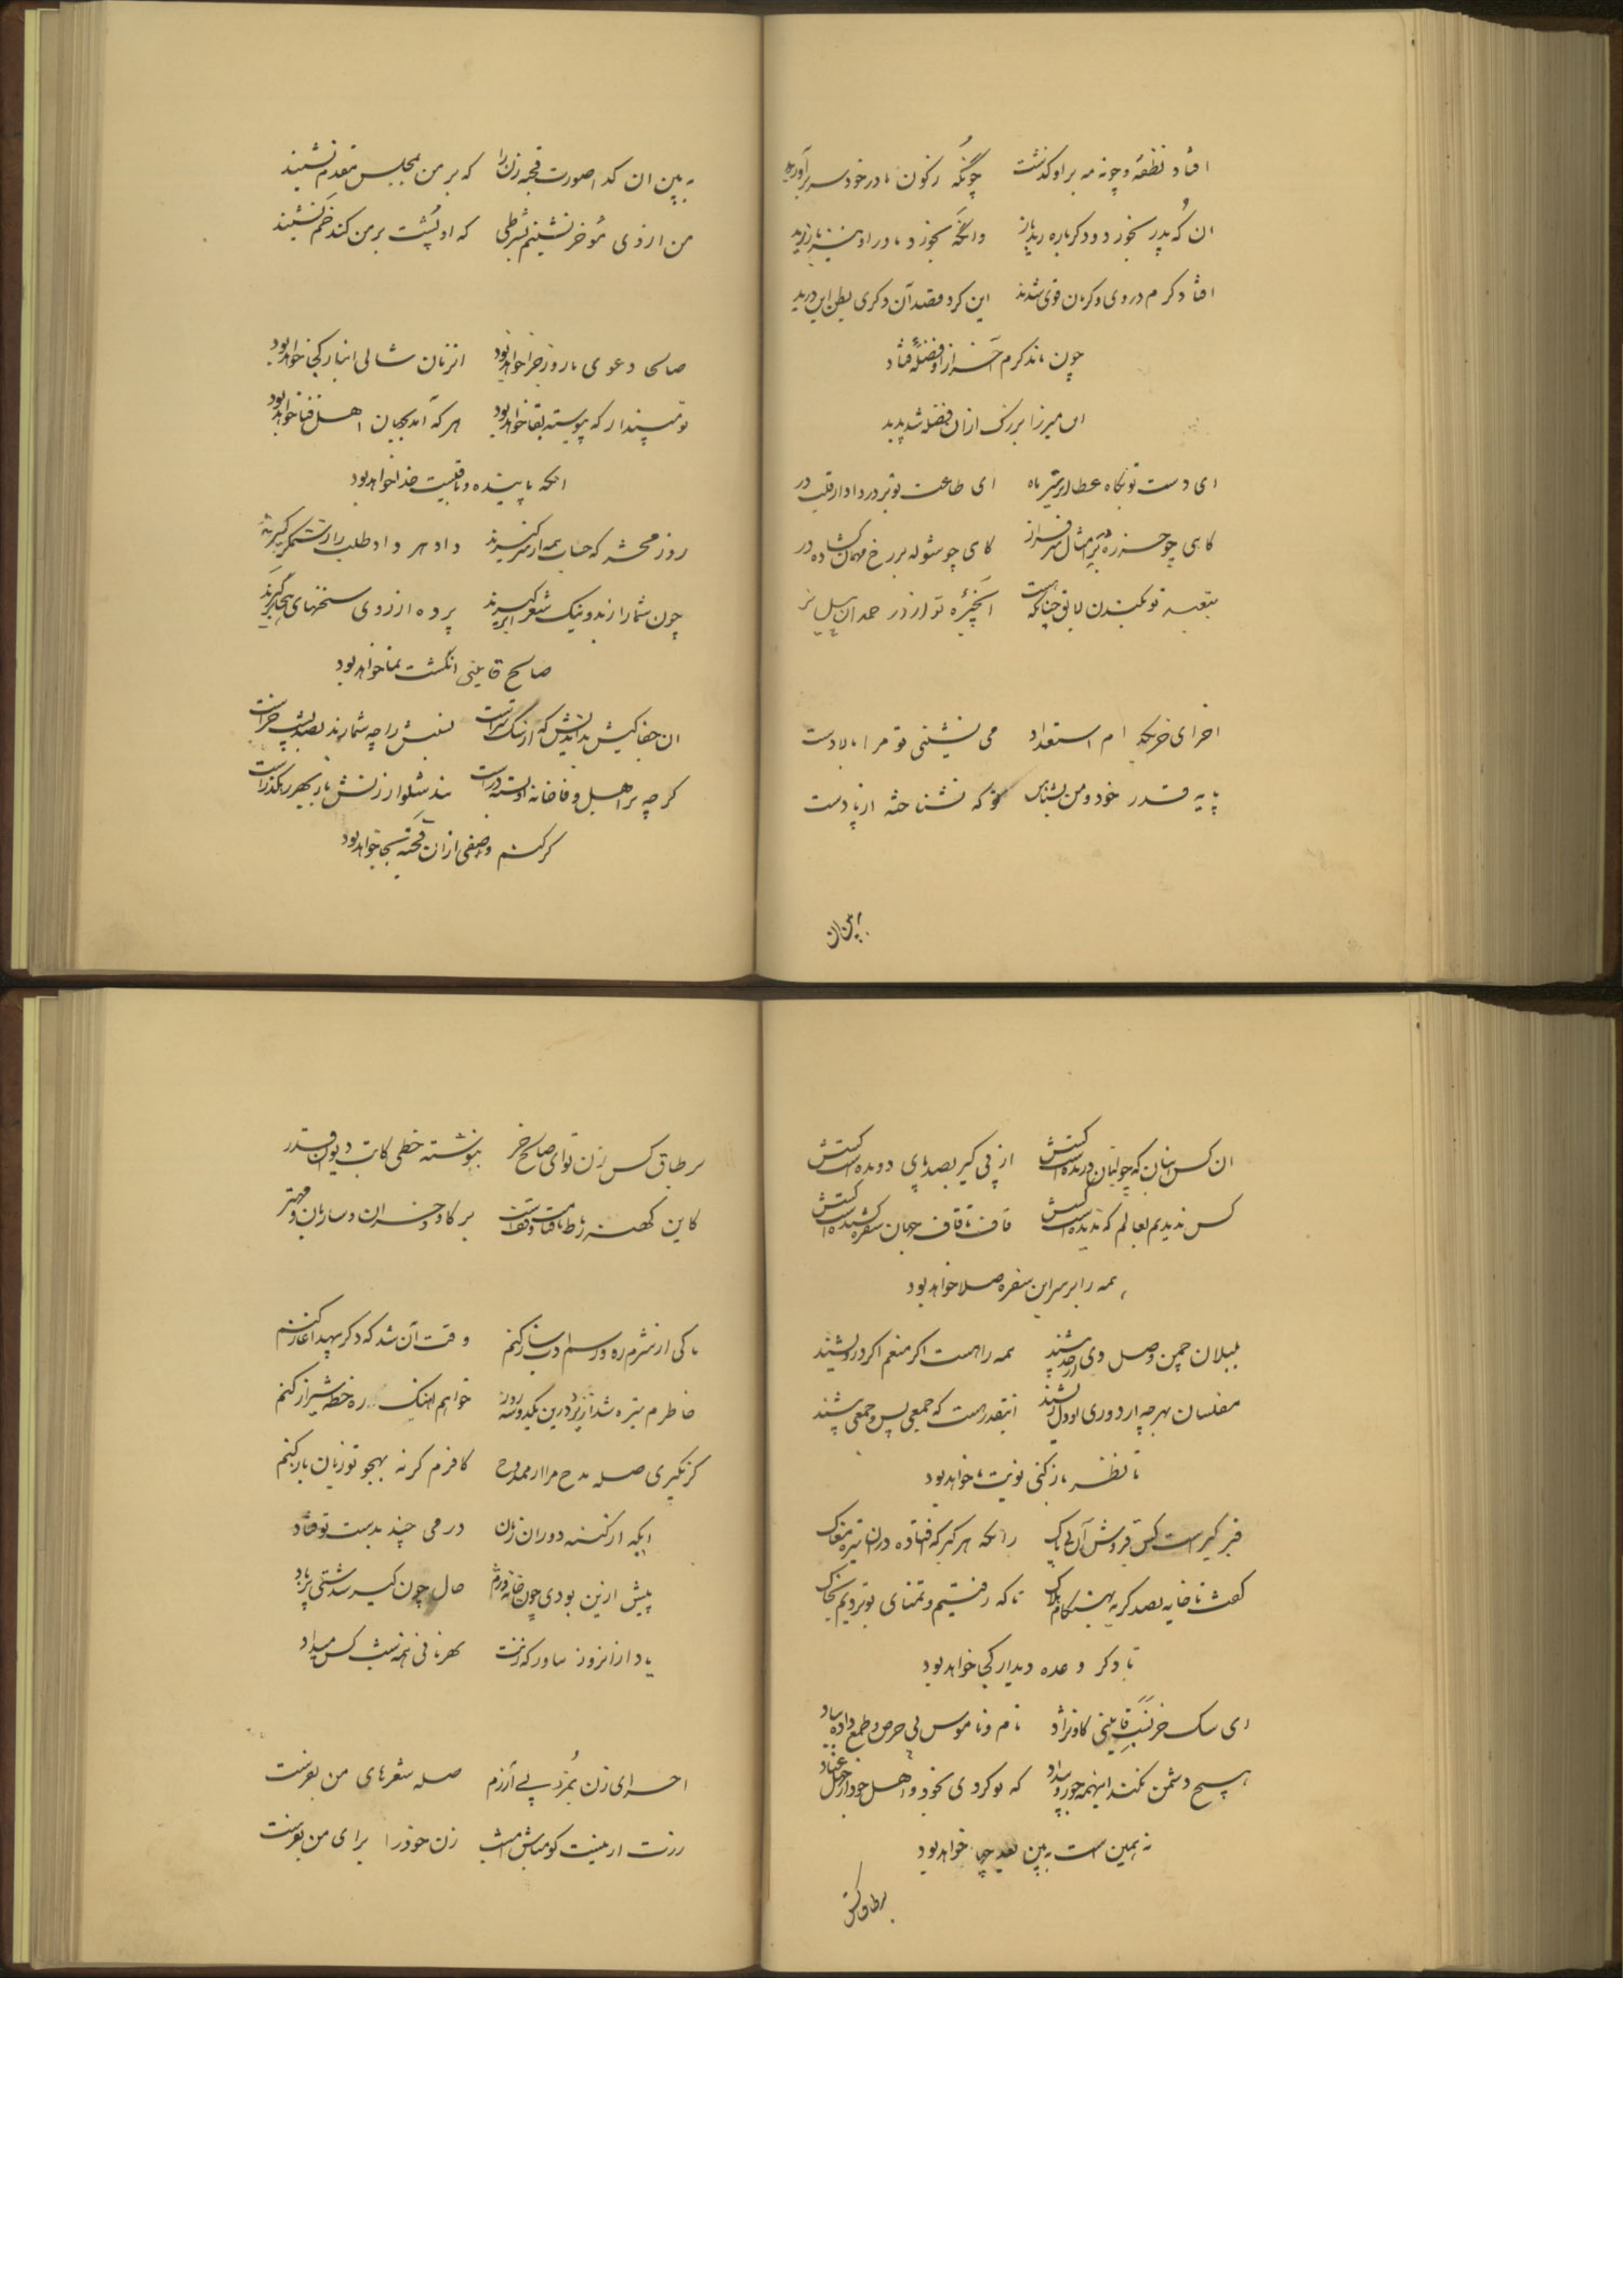 افتاد نطفهٔ و چو نه مه بر او گذشت
چون که ز کون مادر خود سر برآورید
ان که پدر بخورد و دگرباره رید باز
وانگه بخورد مادر او نیز باز رید
افتاد کرم در وی و کرمان قوی شدند
این کرد قصد آن دگری بطن این درید
چون ماند کرم آخر از او فضلهٔ فتاد
این میرزا بزرگ ازان فضله شد پدید
ای دست تو گاه عطا
ای طاعت تو بر در دادار
گاهی چو
گاهی چو شوله بر رخ مهمان گشاده در
تو لایق چنانکه
اخر ای خر بچه ام استعداد
می نشینی تو مرا بالادست
پایه قدر خود و من بشناس
ای که نشناخته از پا دست
به بین ان
به بین ان گدا صورت قحبه زن را
که بر من بمجلس مقدم نشیند
من از وی مؤخر نشینم بشرطی
که او پشت بر من کند خم نشیند
صالحا دعوی ما روز جزا خواهد بود
انزمان شالی انبار کجا خواهد بود
تو مپندار که پیوسته بقا خواهد بود
هر که آمد بجهان اهل فنا خواهد بود
انکه پاینده و باقیست خدا خواهد بود
روز محشر که حساب همه از سر گیرند
داد هر داد طلب را ز ستمگر گیرند
چون شما را ز بد و نیک شعر
پرده از روی سخنهای
صالح قاینی انگشت نما خواهد بود
ان جفا کیش
را چه شمارند
گر چه بر اهل وفا خانه او بسته در است
بند شلوار زنش باز بهر رهگذر است
گر کنم وصفی ازان قحبه بجا خواهد بود
ان کس انبان که چو انبان دریده است کسش
از پی کیر بصد پای دویده است کسش
کس ندیدم بعالم که ندیده است کسش
قاف تا قاف جهان سفره کشیده است کسش
همه را بر سر این سفره صلا خواهد بود
بلبلان چمن وصل وی از حد بیشند
همه را هست اگر منعم اگر درویشند
مفلسان بهر چه از دوری او دل ریشند
اینقدر هست که جمعی پس و جمعی پیشند
تا نظر باز کنی نوبت ما خواهد بود
قبر کیر است کس قحبه فروش آن بی باک
زانکه هر کیر که افتاده دران تیره مغاک
گفت با خایه بصد گریه بهنگام هلاک
تا که رفتیم و تمنای تو بردیم بخاک
تا دگر وعده دیدار کجا خواهد بود
ای سگ خر نسب قاینی گاو نژاد
نام و ناموس پی حرص و طمع داده بباد
هیچ دشمن نکند اینهمه جور و بیداد
که تو کردی بخود و اهل خود از
نه همین است به بین بعد چها خواهد بود
بر طاق کس
بر طاق کس زن تو ای صالح خر
بنوشته خطی کاتب دیوان قدر
کاین کهنه رباط
بر گاو و خران و ساربان و مهتر
تا کی از شرم ره و رسم ادب ساز کنم
وقت آن شد که دگر بیهده آغاز کنم
خاطرم تیره شد از یزد درین یکدو سه روز
خواهم اهنگ ره خطه شیراز کنم
گر نگیری صله مدح مرا از ممدوح
کافرم گر نه بهجو تو زبان باز کنم
ایکه از گردش دوران زمان
درمی چند بدست تو فتاد
پیش ازین بودی چون خایه
حال چون کیر شدستی پر باد
یاد از انروز بیاور که زنت
بهر نانی همه شب کس میداد
اخر ای زن بمزد بی آزرم
صله شعرهای من بفرست
زرت ار نیست گو مباش امشب
زن خود را برای من بفرست